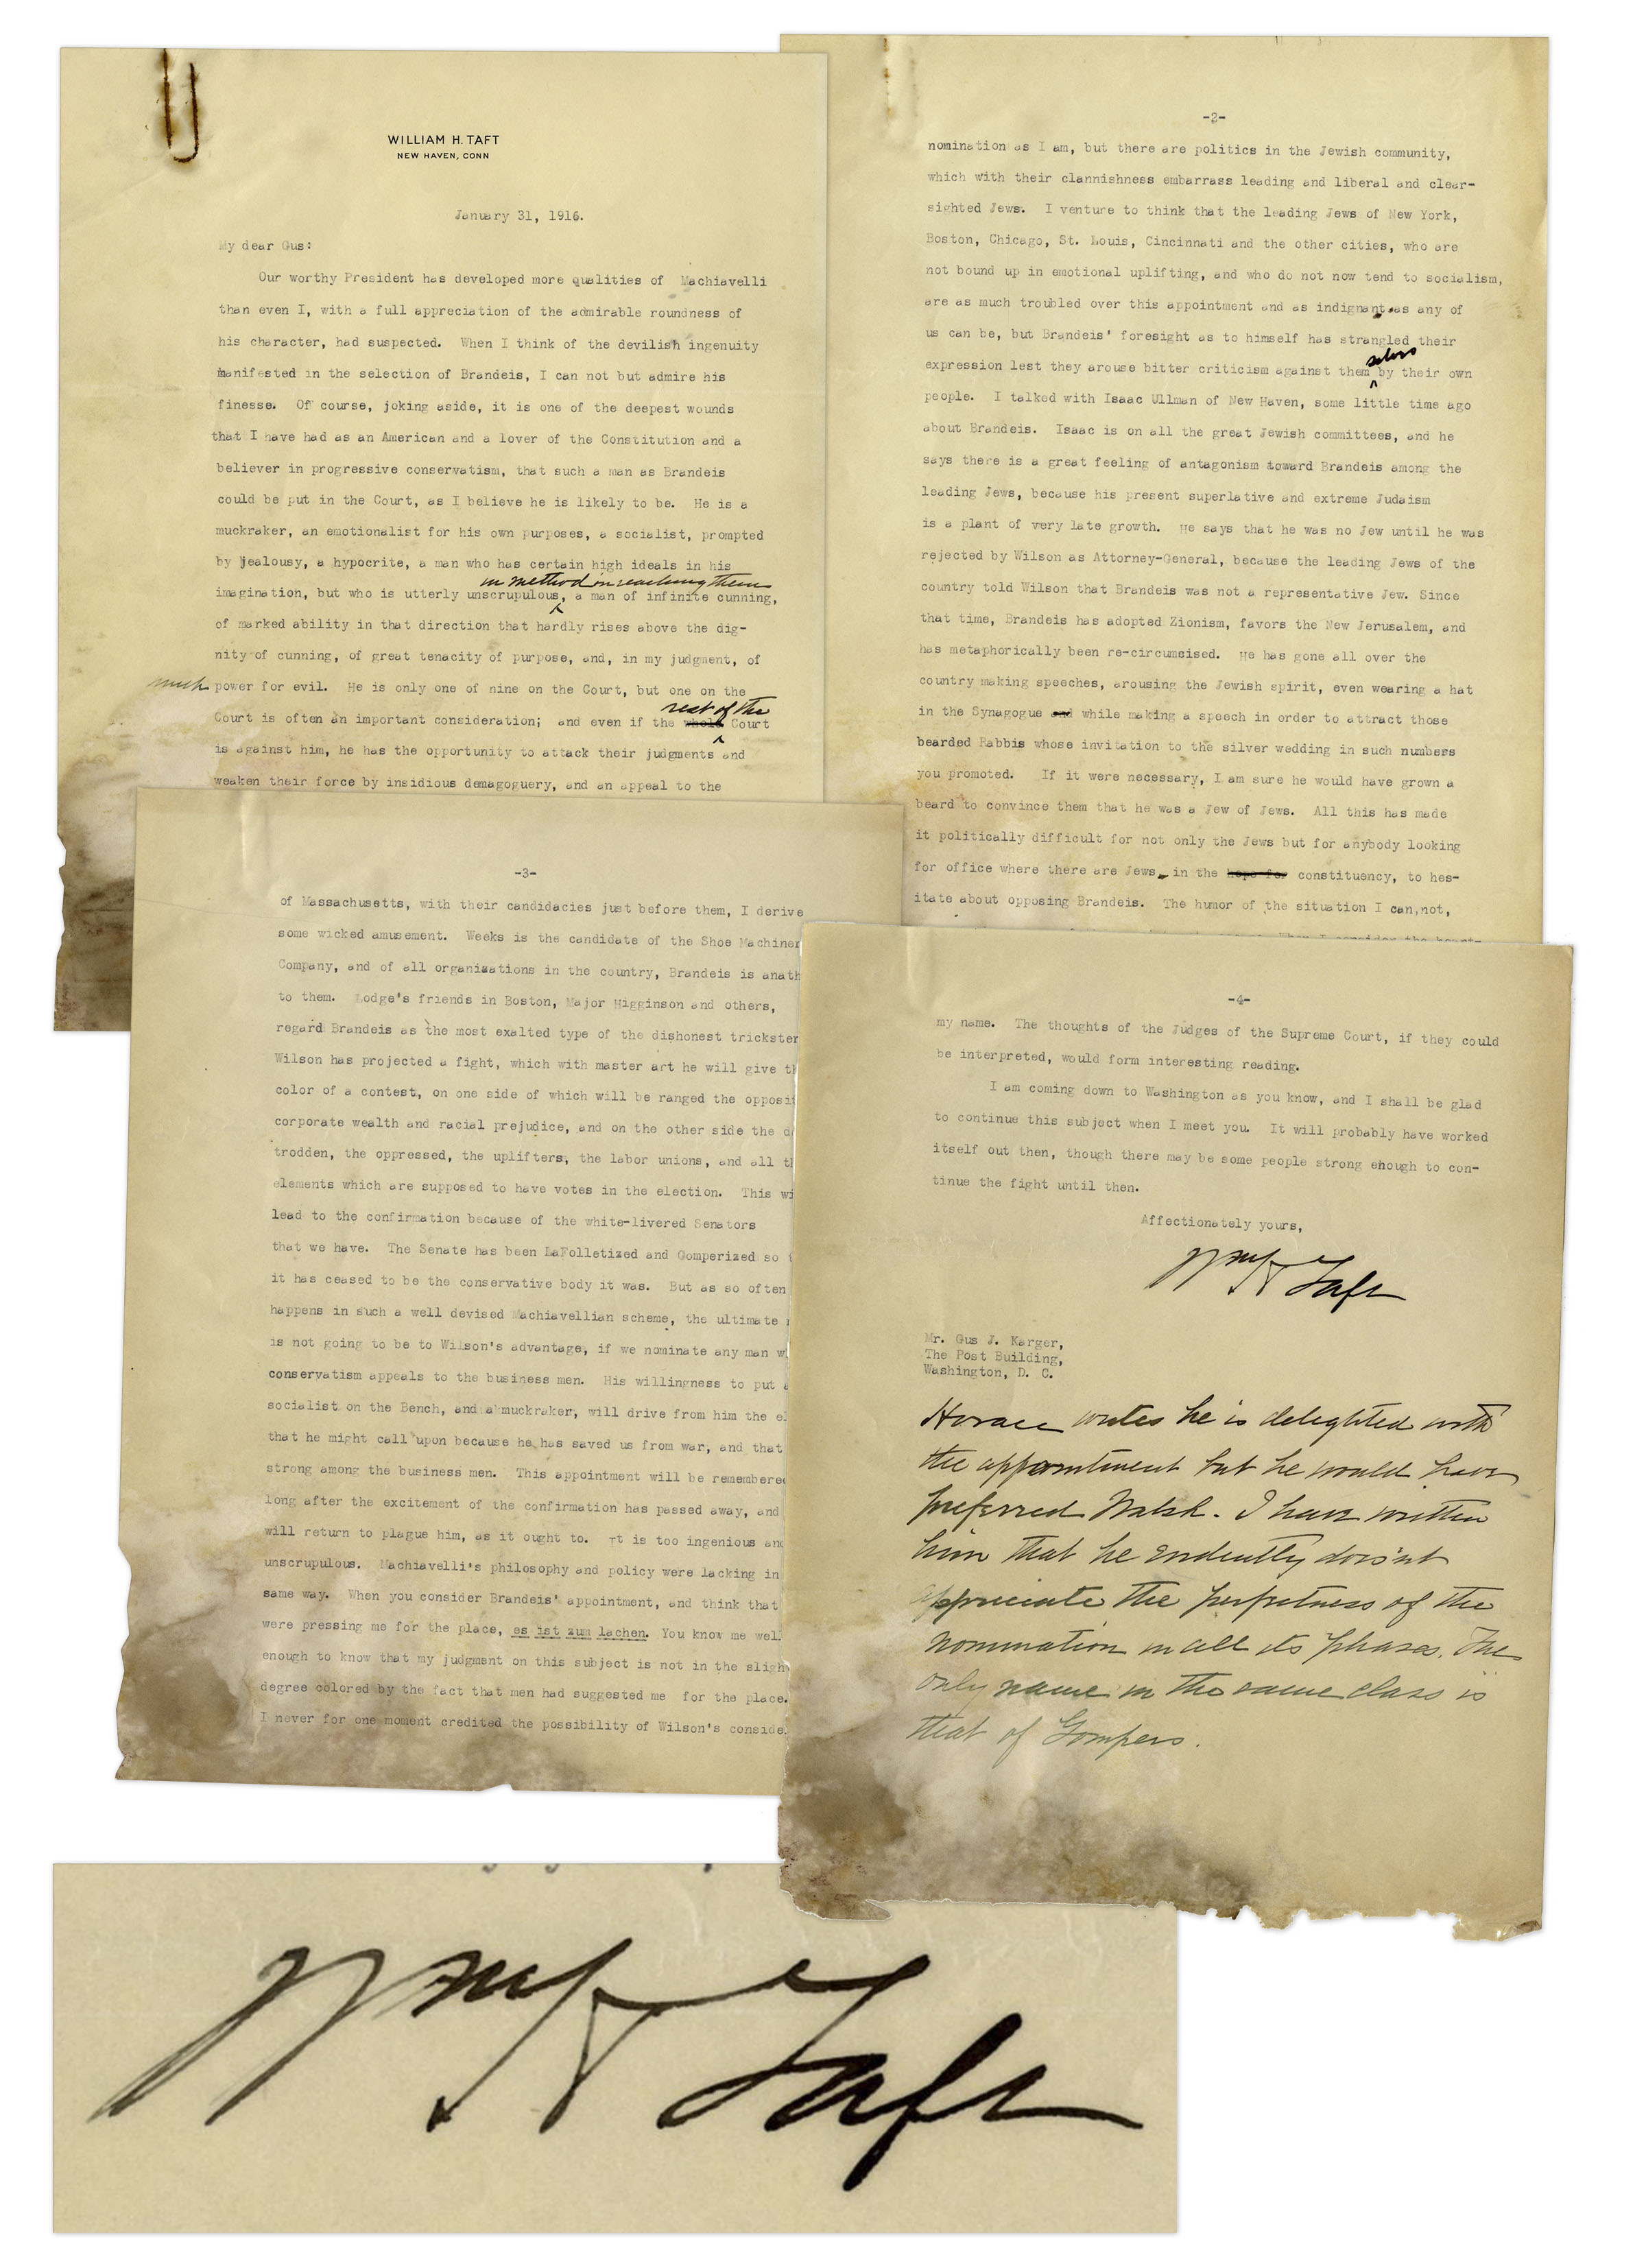 WILLIAM H. TAFT
NEW HAVEN, CONN
January 31, 1916.
My dear Gus:
Our worthy President has developed more qualities of Machiavelli
than even I, with a full appreciation of the admirable roundness of
his character, had suspected. When I think of the devilish ingenuity
manifested in the selection of Brandeis, I can not but admire his
finesse. Of course, joking aside, it is one of the deepest wounds
that I have had as an American and a lover of the Constitution and a
believer in progressive conservatism, that such a man as Brandeis
could be put in the Court, as I believe he is likely to be. He is a
muckraker, an emotionalist for his own purposes, a socialist, prompted
by jealousy, a hypocrite, a man who has certain high ideals in his
in method in reaching them
imagination, but who is utterly unscrupulous, a man of infinite cunning,
of marked ability in that direction that hardly rises above the dig-
nity of cunning, of great tenacity of purpose, and, in my judgment, of
much power for evil. He is only one of nine on the Court, but one on the
rest of the
Court is often an important consideration; and even if the whole Court
is against him, he has the opportunity to attack their judgments and
weaken their force by insidious demagoguery, and an appeal to the
-2-
nomination as I am, but there are politics in the Jewish community,
which with their clannishness embarrass leading and liberal and clear-
sighted Jews. I venture to think that the leading Jews of New York,
Boston, Chicago, St. Louis, Cincinnati and the other cities, who are
not bound up in emotional uplifting, and who do not now tend to socialism,
are as much troubled over this appointment and as indignant as any of
us can be, but Brandeis' foresight as to himself has strangled their
selves
expression lest they arouse bitter criticism against them by their own
people. I talked with Isaac Ullman of New Haven, some little time ago
about Brandeis. Isaac is on all the great Jewish committees, and he
says there is a great feeling of antagonism toward Brandeis among the
leading Jews, because his present superlative and extreme Judaism
is a plant of very late growth. He says that he was no Jew until he was
rejected by Wilson as Attorney-General, because the leading Jews of the
country told Wilson that Brandeis was not a representative Jew. Since
that time, Brandeis has adopted Zionism, favors the New Jerusalem, and
has metaphorically been re-circumcised. He has gone all over the
country making speeches, arousing the Jewish spirit, even wearing a hat
in the Synagogue and while making a speech in order to attract those
bearded Rabbis whose invitation to the silver wedding in such numbers
you promoted. If it were necessary, I am sure he would have grown a
beard to convince them that he was a Jew of Jews. All this has made
it politically difficult for not only the Jews but for anybody looking
for office where there are Jews in the hope for constituency, to hes-
itate about opposing Brandeis. The humor of the situation I can,not,
When I consider the
-3-
of Massachusetts, with their candidacies just before them, I derive
some wicked amusement. Weeks is the candidate of the Shoe Machiner
Company, and of all organizations in the country, Brandeis is anath
to them. Lodge's friends in Boston, Major Higginson and others,
regard Brandeis as the most exalted type of the dishonest trickster
Wilson has projected a fight, which with master art he will give th
color of a contest, on one side of which will be ranged the opposit
corporate wealth and racial prejudice, and on the other side the d
trodden, the oppressed, the uplifters, the labor unions, and all th
elements which are supposed to have votes in the election. This wi
lead to the confirmation because of the white-livered Senators
that we have. The Senate has been LaFolletized and Gomperized so t
it has ceased to be the conservative body it was. But as so often
happens in such a well devised Machiavellian scheme, the ultimate
is not going to be to Wilson's advantage, if we nominate any man w
conservatism appeals to the business men. His willingness to put a
socialist on the Bench, and a muckraker, will drive from him the el
that he might call upon because he has saved us from war, and that
strong among the business men. This appointment will be remembered
long after the excitement of the confirmation has passed away, and
will return to plague him, as it ought to. It is too ingenious and
unscrupulous. Machiavelli's philosophy and policy were lacking in
same way. When you consider Brandeis' appointment, and think that
were pressing me for the place, es ist zum lachen. You know me well
enough to know that my judgment on this subject is not in the sligh
degree colored by the fact that men had suggested me for the place.
I never for one moment credited the possibility of Wilson's conside
-4-
my name. The thoughts of the Judges of the Supreme Court, if they could
be interpreted, would form interesting reading.
I am coming down to Washington as you know, and I shall be glad
to continue this subject when I meet you. It will probably have worked
itself out then, though there may be some people strong enough to con-
tinue the fight until then.
Affectionately yours,
Wm H Taft
Mr. Gus J. Karger,
The Post Building,
Washington, D. C.
Horace writes he is delighted with
the appointment but he would have
preferred Walsh. I have written
him that he evidently does'nt
appreciate the perfectness of the
nomination in all its phases. The
only name in the same class is
that of Gompers.
Wm H Taft